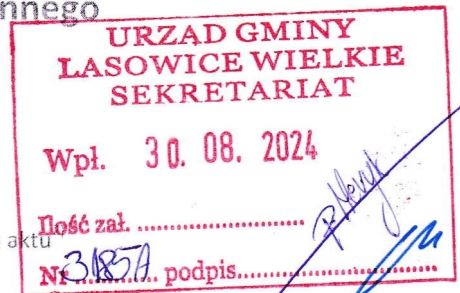 nnego
URZĄD GMINY
LASOWICE WIELKIE
SEKRETARIAT
Wpł. 30. 08. 2024
Ilość zał. ........................
aktu
Nr............ podpis........................